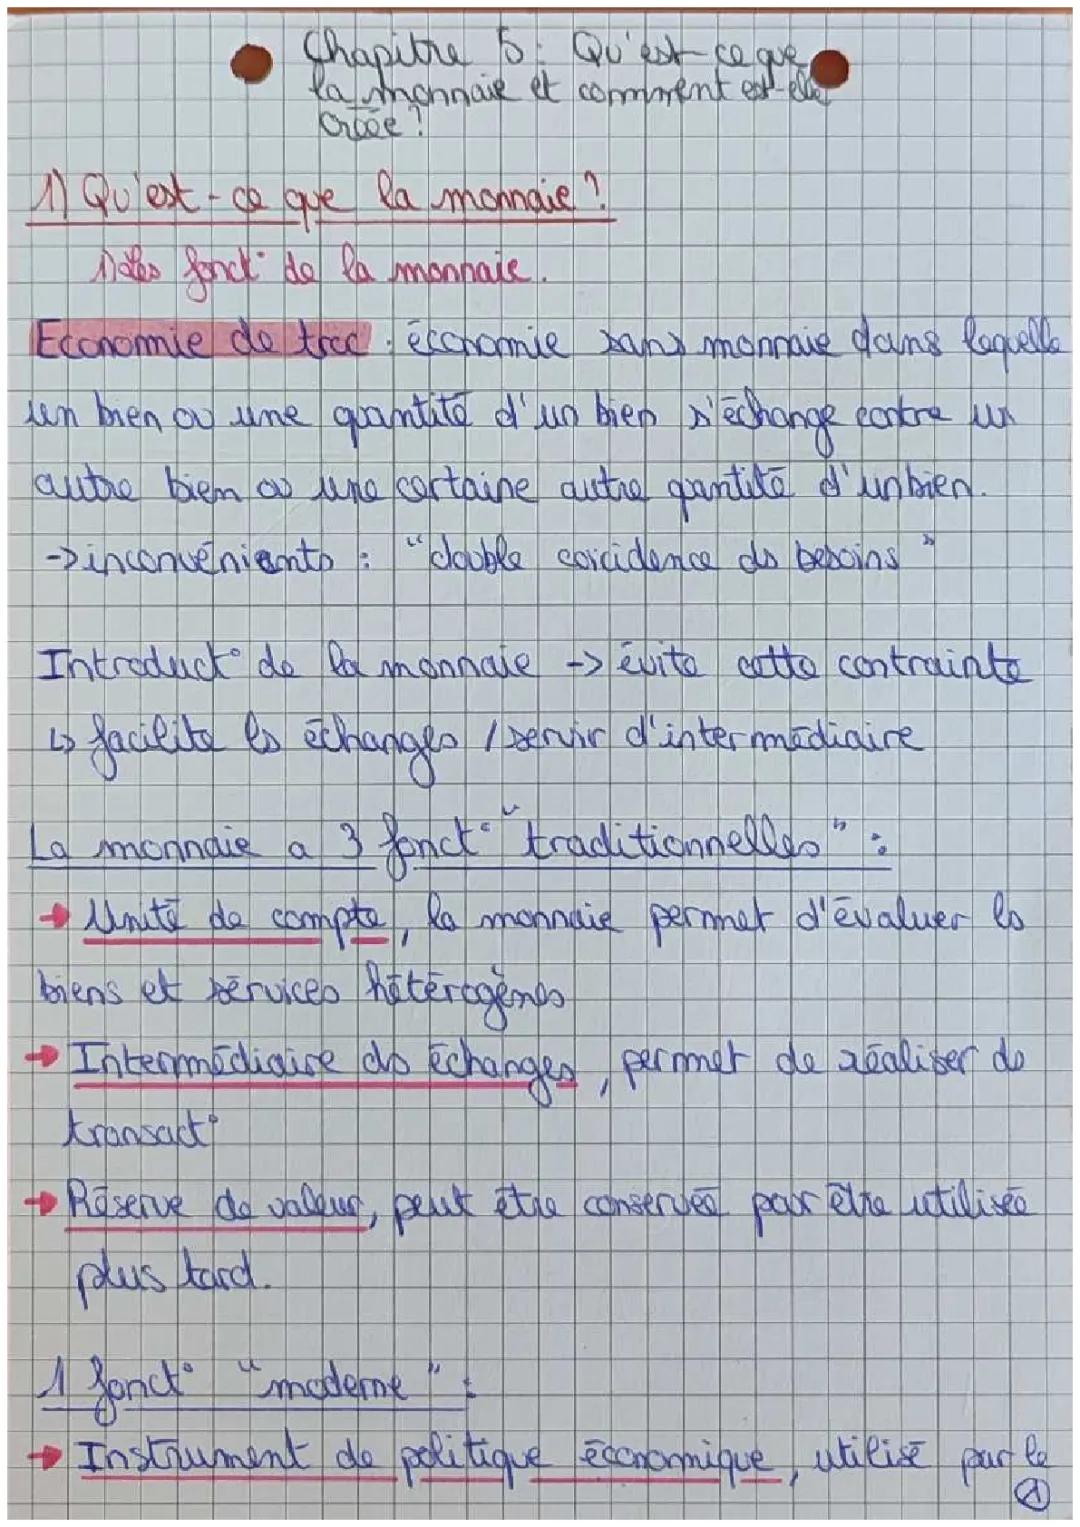 Chapitre 5 : Qu'est-ce que
la monnaie et comment est-elle
créée ?
1) Qu'est-ce que la monnaie ?
1) Les fonct° de la monnaie.
Economie de troc : économie sans monnaie dans laquelle
un bien ou une quantité d'un bien s'échange contre un
autre bien ou une certaine autre qantité d'un bien.
-> inconvénients : "double coïcidence ds besoins"
Introduct° de la monnaie -> évite cette contrainte
↳ facilite ls échanges / servir d'intermédiaire
La monnaie a 3 fonct° "traditionnelles" :
→ Unité de compte, la monnaie permet d'évaluer ls
biens et services hétérogènes
→ Intermédiaire ds échanges, permet de réaliser ds
transact°
→ Réserve de valeur, peut être conservée par être utilisée
plus tard.
1 fonct° "moderne" :
→ Instrument de politique économique, utilisé par le
1